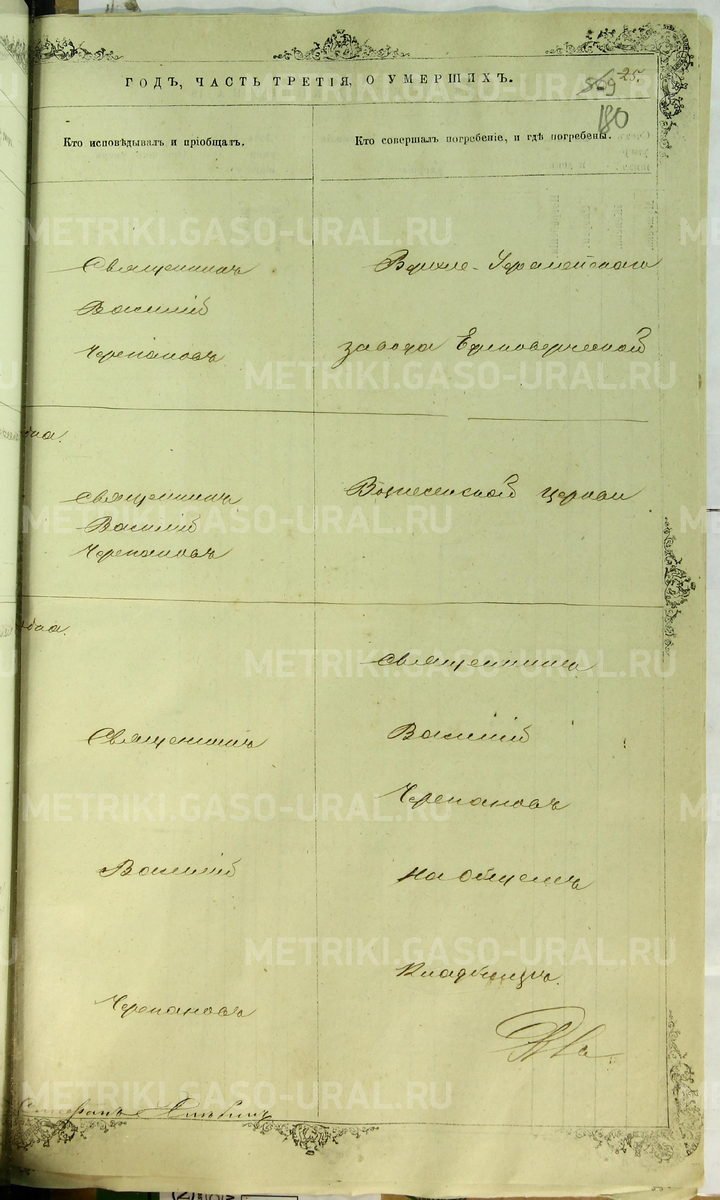 ГОДЪ, ЧАСТЬ ТРЕТІЯ, О УМЕРШИХЪ.
569
25.
180
Кто исповѣдывалъ и пріобщалъ.
Кто совершалъ погребеніе, и гдѣ погребены.
Священникъ
Василій
Черепановъ
Священникъ
Василій
Черепановъ
Священникъ
Василій
Черепановъ
Верхне-Уфалейскаго
завода Единоверческой
Вознесенской церкви
священникъ
Василій
Черепановъ
на общемъ
кладбищѣ.
METRIKI.GASO-URAL.RU